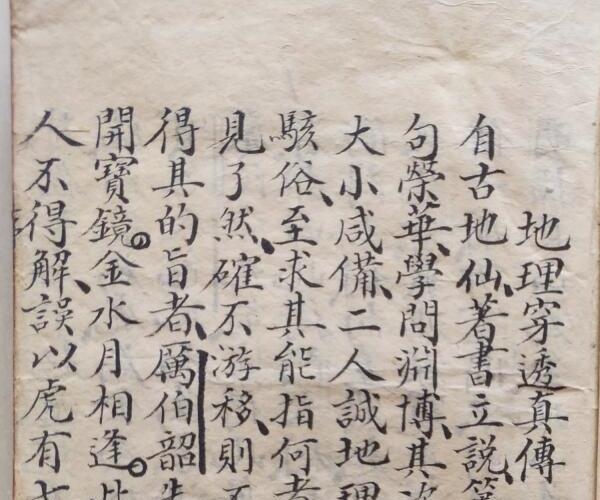 地理穿透真傳
自古地仙、著書立說、篇
句榮華、學問淵博、其
大小咸備、二人誠地理
駭俗、至求其能指何者
見了然、確不游移、則
得其的旨者、厲伯韶
開寶鏡。金水月相逢。
人不得解、誤以虎有